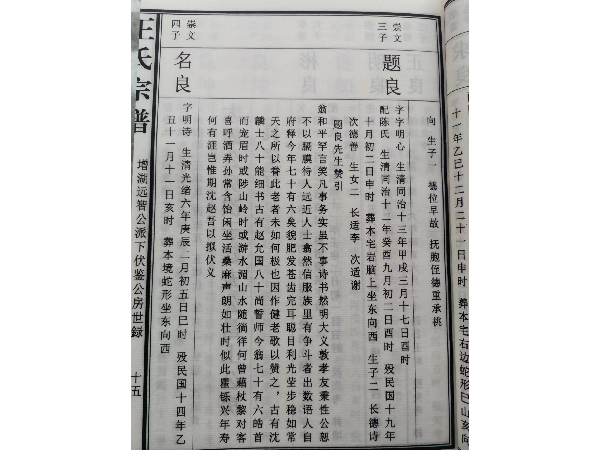 十一年乙巳十二月二十一日申时 葬本宅右边蛇形巳山亥向
向 生子一 德位早故 抚胞侄德重承桃
崇文
三子
题良
字字明心 生清同治十三年甲戌三月十七日酉时
配陈氏 生清同治十二年癸酉九月初二日酉时 殁民国十九年
十月初二日申时 葬本宅岩脑上坐东向西 生子二 长德诗
次德善 生女二 长适李 次适谢
题良先生赞引
翁和平罕言笑凡事务实虽不事诗书然明大义敦孝友秉性公恕
不以膈膜待人远近人士翕然信服族里有争斗者出数语人自
府释今年七十有六矣貌肥发苍齿完耳聪目利光莹步稳如常
天之所以眷此老者未如何极也因作健老歌以赞之，古有沈
麟士八十能细书古有赵允国八十尚誓师今翁七十有六皓首
而宠眉时或陟山岭时或游水湄山水随徜徉何曾藉杖藜对客
喜呼酒弄孙常含饴闲坐话桑麻声朗如壮时似此矍铄兴年寿
何有涯岂惟期沈赵吾以拟伏义
崇文
四子
名良
字明诗 生清光绪六年庚辰二月初五日巳时 殁民国十四年乙
丑十一月十二日亥时 葬本境蛇形坐东向西
王氏宗谱
增湖远智公派下伏鉴公房世録
十五